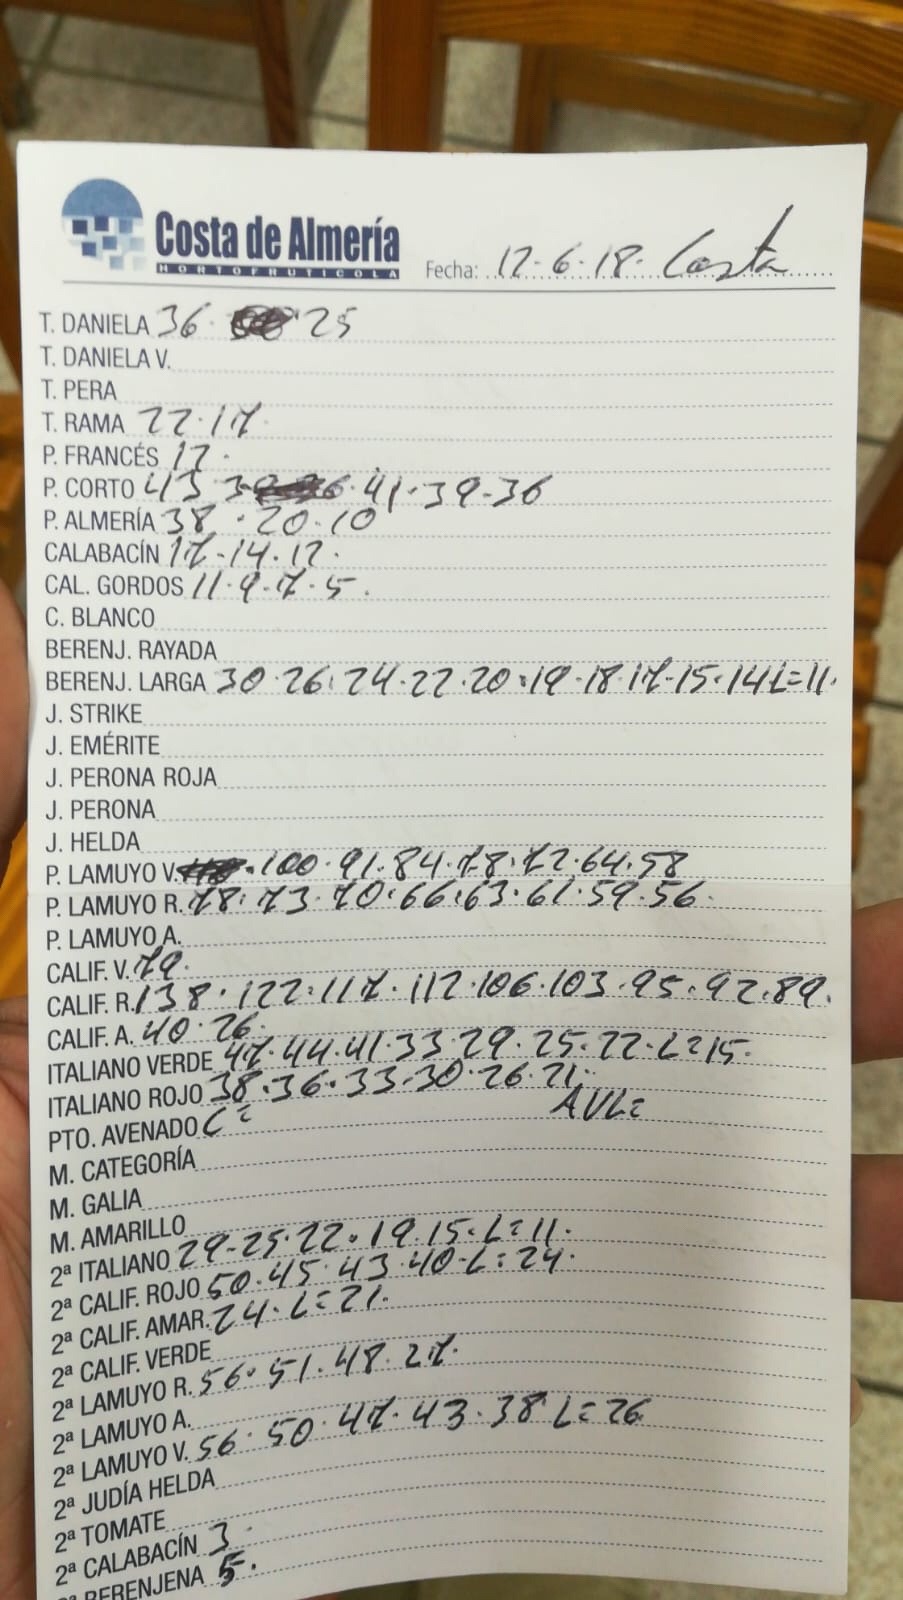 Costa de Almería
HORTOFRUTICOLA
Fecha: 12-6-18. Costa
T. DANIELA 36. 25
T. DANIELA V.
T. PERA
T. RAMA 22.17.
P. FRANCÉS 17.
P. CORTO 43 41.39-36
P. ALMERÍA 38 .20.10
CALABACÍN 17-14.12.
CAL. GORDOS 11.9.7.5.
C. BLANCO
BERENJ. RAYADA
BERENJ. LARGA 30.26.24.22.20.19-18.17-15.14 L=11.
J. STRIKE
J. EMÉRITE
J. PERONA ROJA
J. PERONA
J. HELDA
P. LAMUYO V. 100.91.84.78.72.64.58
P. LAMUYO R. 78.73.70.66.63.61.59.56.
P. LAMUYO A.
CALIF. V. 79.
CALIF. R. 138.122.117.112.106.103.95.92.89.
CALIF. A. 40.26.
ITALIANO VERDE 47.44.41.33.29.25.22.L=15.
ITALIANO ROJO 38.36.33.30.26.21.
PTO. AVENADO C= AVL=
M. CATEGORÍA
M. GALIA
M. AMARILLO
2ª ITALIANO 29-25.22.19.15.L=11.
2ª CALIF. ROJO 50.45.43.40-L=24.
2ª CALIF. AMAR. 24.L=21.
2ª CALIF. VERDE
2ª LAMUYO R. 56.51.48.27.
2ª LAMUYO A.
2ª LAMUYO V. 56.50.47.43.38 L=26
2ª JUDÍA HELDA
2ª TOMATE
2ª CALABACÍN 3
2ª BERENJENA 5.